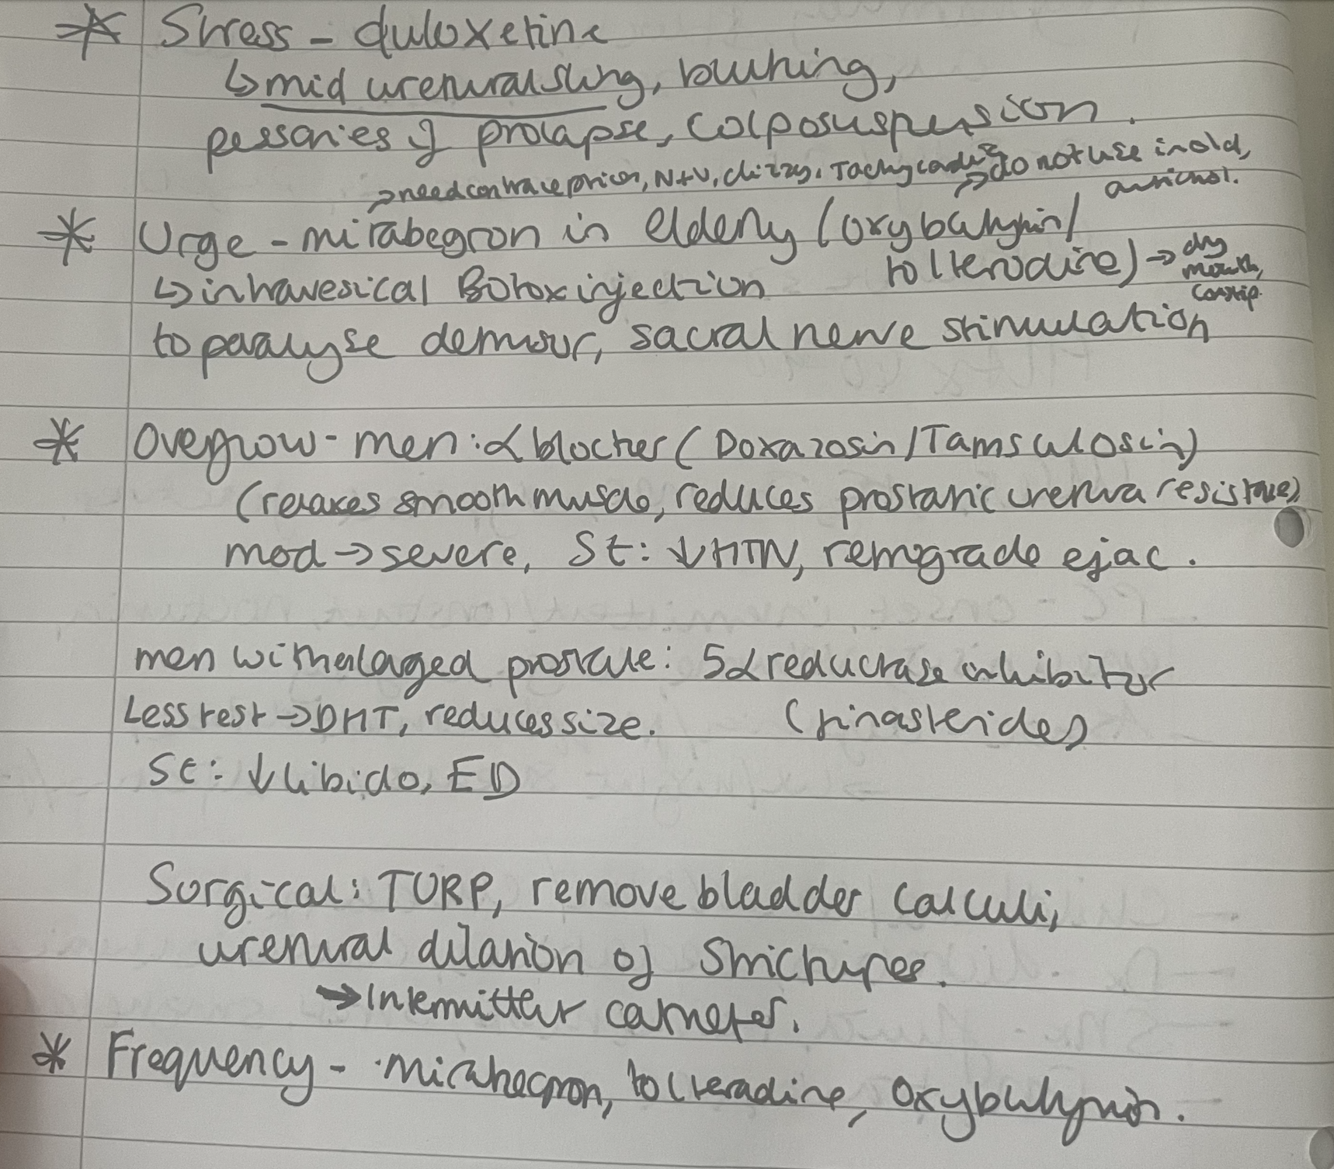 * Stress - duloxetine
↳ mid urethral sling, bulking,
pessaries if prolapse, colposuspension.
→ need contraception, N+V, dizzy, Tachycardic → do not use in old,
antichol.
* Urge - mirabegron in elderly (oxybutynin/
tolterodine) → dry
mouth,
constip.
↳ intravesical Botox injection
to paralyse detrusor, sacral nerve stimulation
* Overflow - men: α blocker (Doxazosin/Tamsulosin)
(relaxes smooth muscle, reduces prostatic urethra resistance)
mod → severe, SE: ↓HTN, retrograde ejac.
men with enlarged prostate: 5α reductase inhibitor
Less test → DHT, reduces size. (finasteride)
SE: ↓ libido, ED
Surgical: TURP, remove bladder calculi,
urethral dilation of strictures.
→ Intermitter catheter.
* Frequency - mirabegron, tolteradine, oxybutynin.